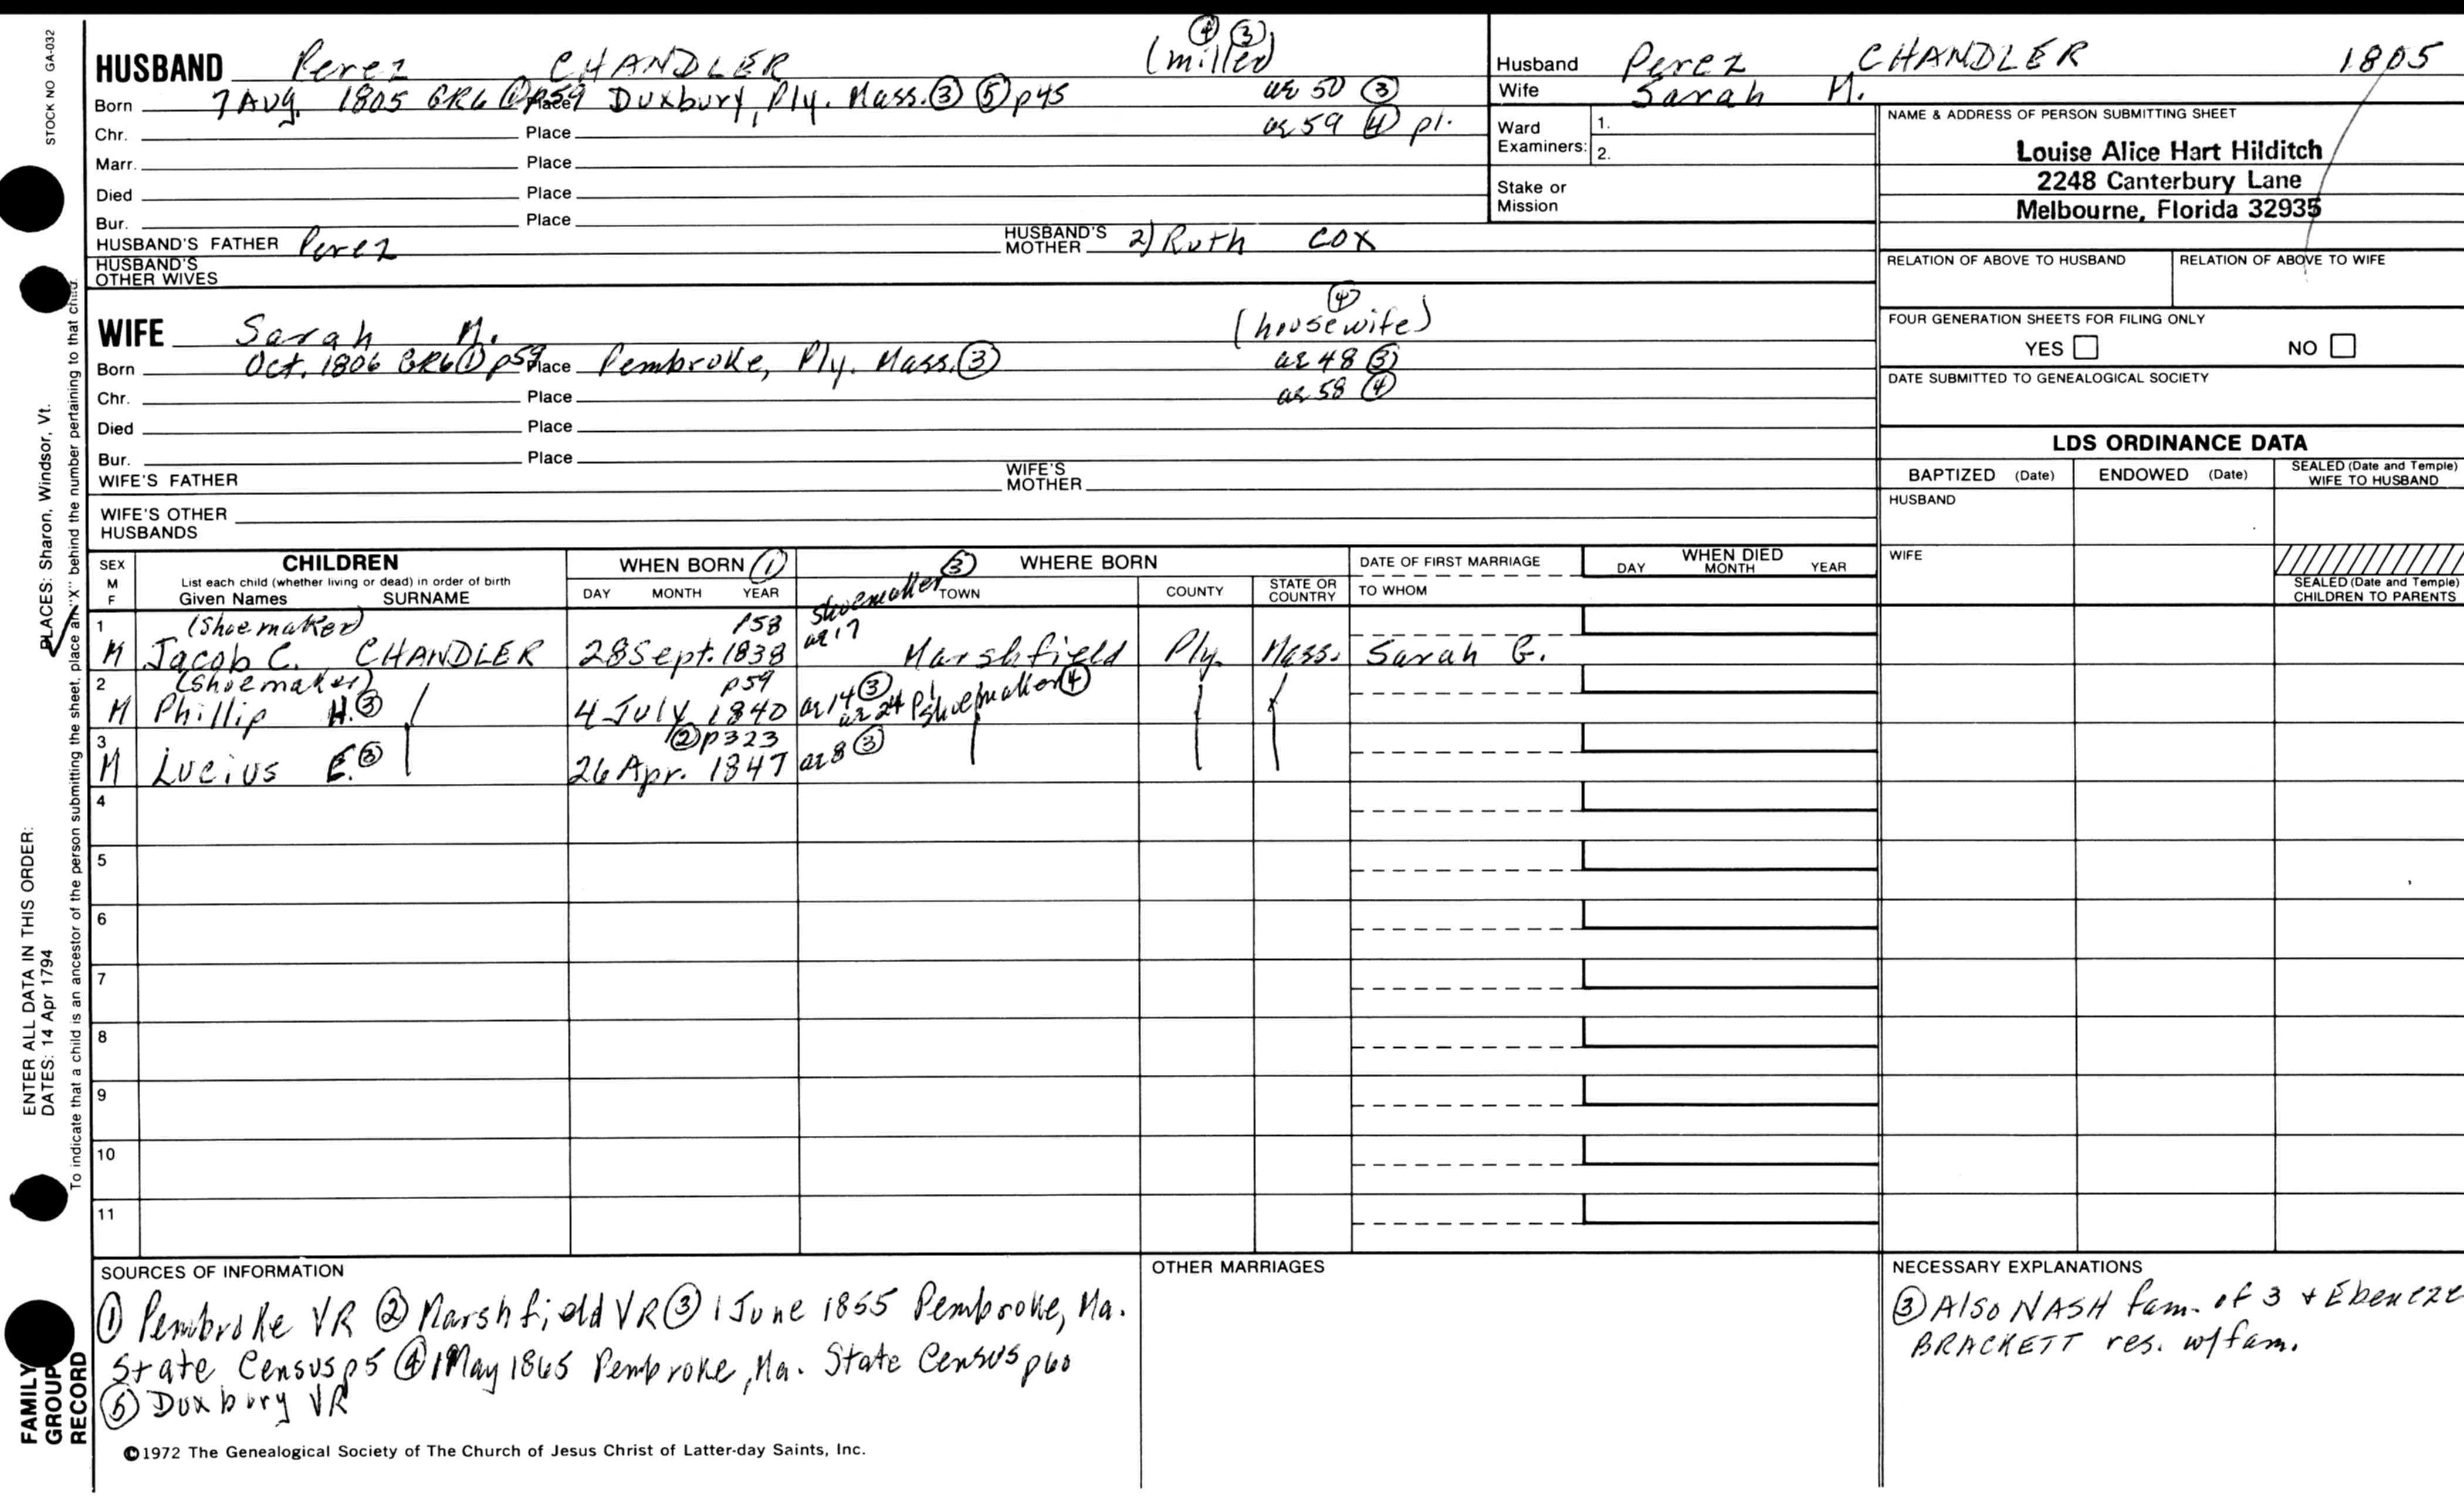 STOCK NO GA-032
④ ③
HUSBAND Perez CHANDLER (miller)
Born 7 Aug. 1805 GR6 ① p59 Place Duxbury, Ply. Mass. ③ ⑤ p45 ae 50 ③
Chr. Place ae 59 ④ pl.
Marr. Place
Died Place
Bur. Place
HUSBAND'S FATHER Perez HUSBAND'S MOTHER 2) Ruth COX
HUSBAND'S OTHER WIVES
④
WIFE Sarah M. (housewife)
Born Oct. 1806 GR6 ① p59 Place Pembroke, Ply. Mass. ③ ae 48 ③
Chr. Place ae 58 ④
Died Place
Bur. Place
WIFE'S FATHER WIFE'S MOTHER
WIFE'S OTHER HUSBANDS
Husband Perez CHANDLER 1805
Wife Sarah M.
Ward Examiners: 1.
2.
Stake or Mission
NAME & ADDRESS OF PERSON SUBMITTING SHEET
Louise Alice Hart Hilditch
2248 Canterbury Lane
Melbourne, Florida 32935
RELATION OF ABOVE TO HUSBAND RELATION OF ABOVE TO WIFE
FOUR GENERATION SHEETS FOR FILING ONLY
YES NO
DATE SUBMITTED TO GENEALOGICAL SOCIETY
LDS ORDINANCE DATA
BAPTIZED (Date) ENDOWED (Date) SEALED (Date and Temple) WIFE TO HUSBAND
HUSBAND
WIFE
SEALED (Date and Temple) CHILDREN TO PARENTS
SEX M F CHILDREN WHEN BORN ① ③ WHERE BORN DATE OF FIRST MARRIAGE WHEN DIED
List each child (whether living or dead) in order of birth
Given Names SURNAME DAY MONTH YEAR TOWN COUNTY STATE OR COUNTRY TO WHOM DAY MONTH YEAR
1 (Shoemaker) p58 shoemaker ae 17
M Jacob C. CHANDLER 28 Sept. 1838 Marshfield Ply. Mass. Sarah G.
2 (Shoemaker) p59 ae 14 ③
M Phillip H. ③ 4 July 1840 ae 24 pl shoemaker ④
3 ② p323
M Lucius E. ③ 26 Apr. 1847 ae 8 ③
4
5
6
7
8
9
10
11
SOURCES OF INFORMATION
① Pembroke VR ② Marshfield VR ③ 1 June 1855 Pembroke, Ma.
State Census p5 ④ 1 May 1865 Pembroke, Ma. State Census p60
⑤ Duxbury VR
OTHER MARRIAGES
NECESSARY EXPLANATIONS
③ Also NASH fam. of 3 + Ebeneze
BRACKETT res. w/ fam.
©1972 The Genealogical Society of The Church of Jesus Christ of Latter-day Saints, Inc.
FAMILY GROUP RECORD
ENTER ALL DATA IN THIS ORDER:
DATES: 14 Apr 1794
PLACES: Sharon, Windsor, Vt.
To indicate that a child is an ancestor of the person submitting the sheet, place an "X" behind the number pertaining to that child.